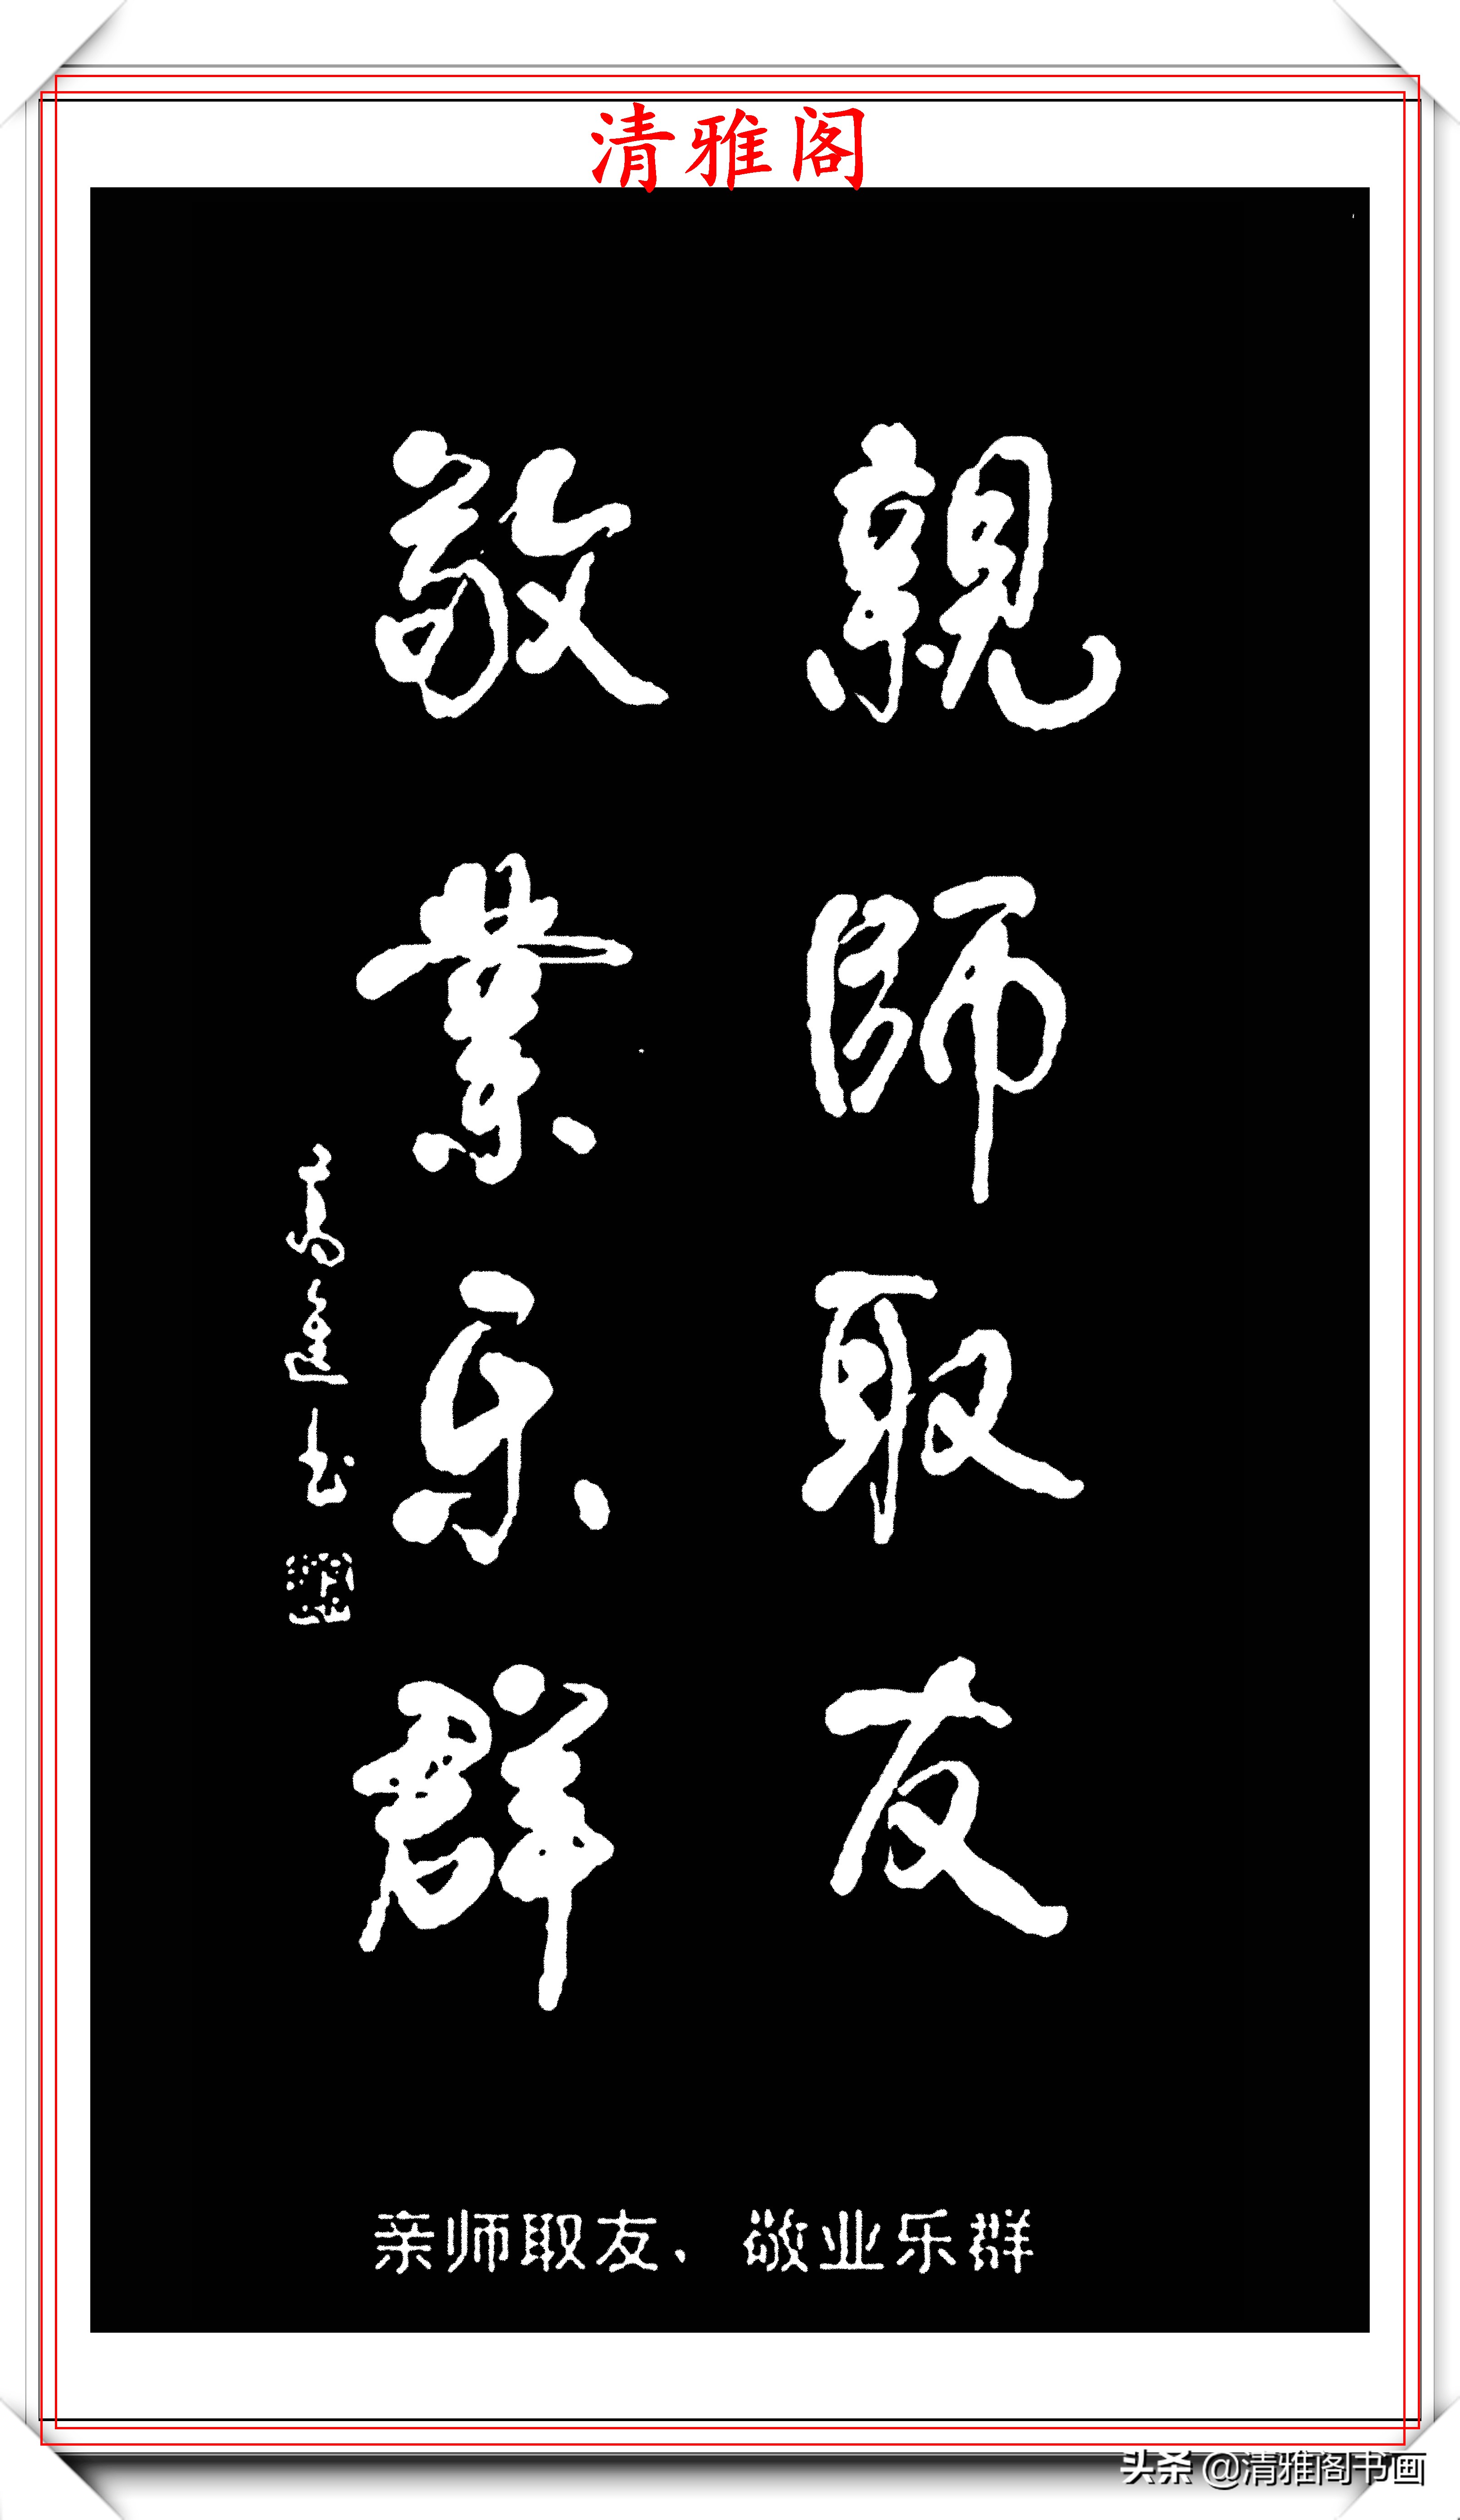 清雅阁
親師取友
敬業乐群
亲师取友、敬业乐群
头条 @清雅阁书画